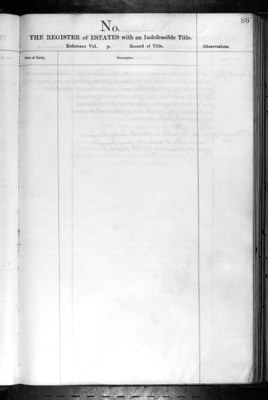 86
No.
THE REGISTER of ESTATES with an Indefeasible Title.
Reference Vol. p. Record of Title.
Observations.
Date of Entry. Description.